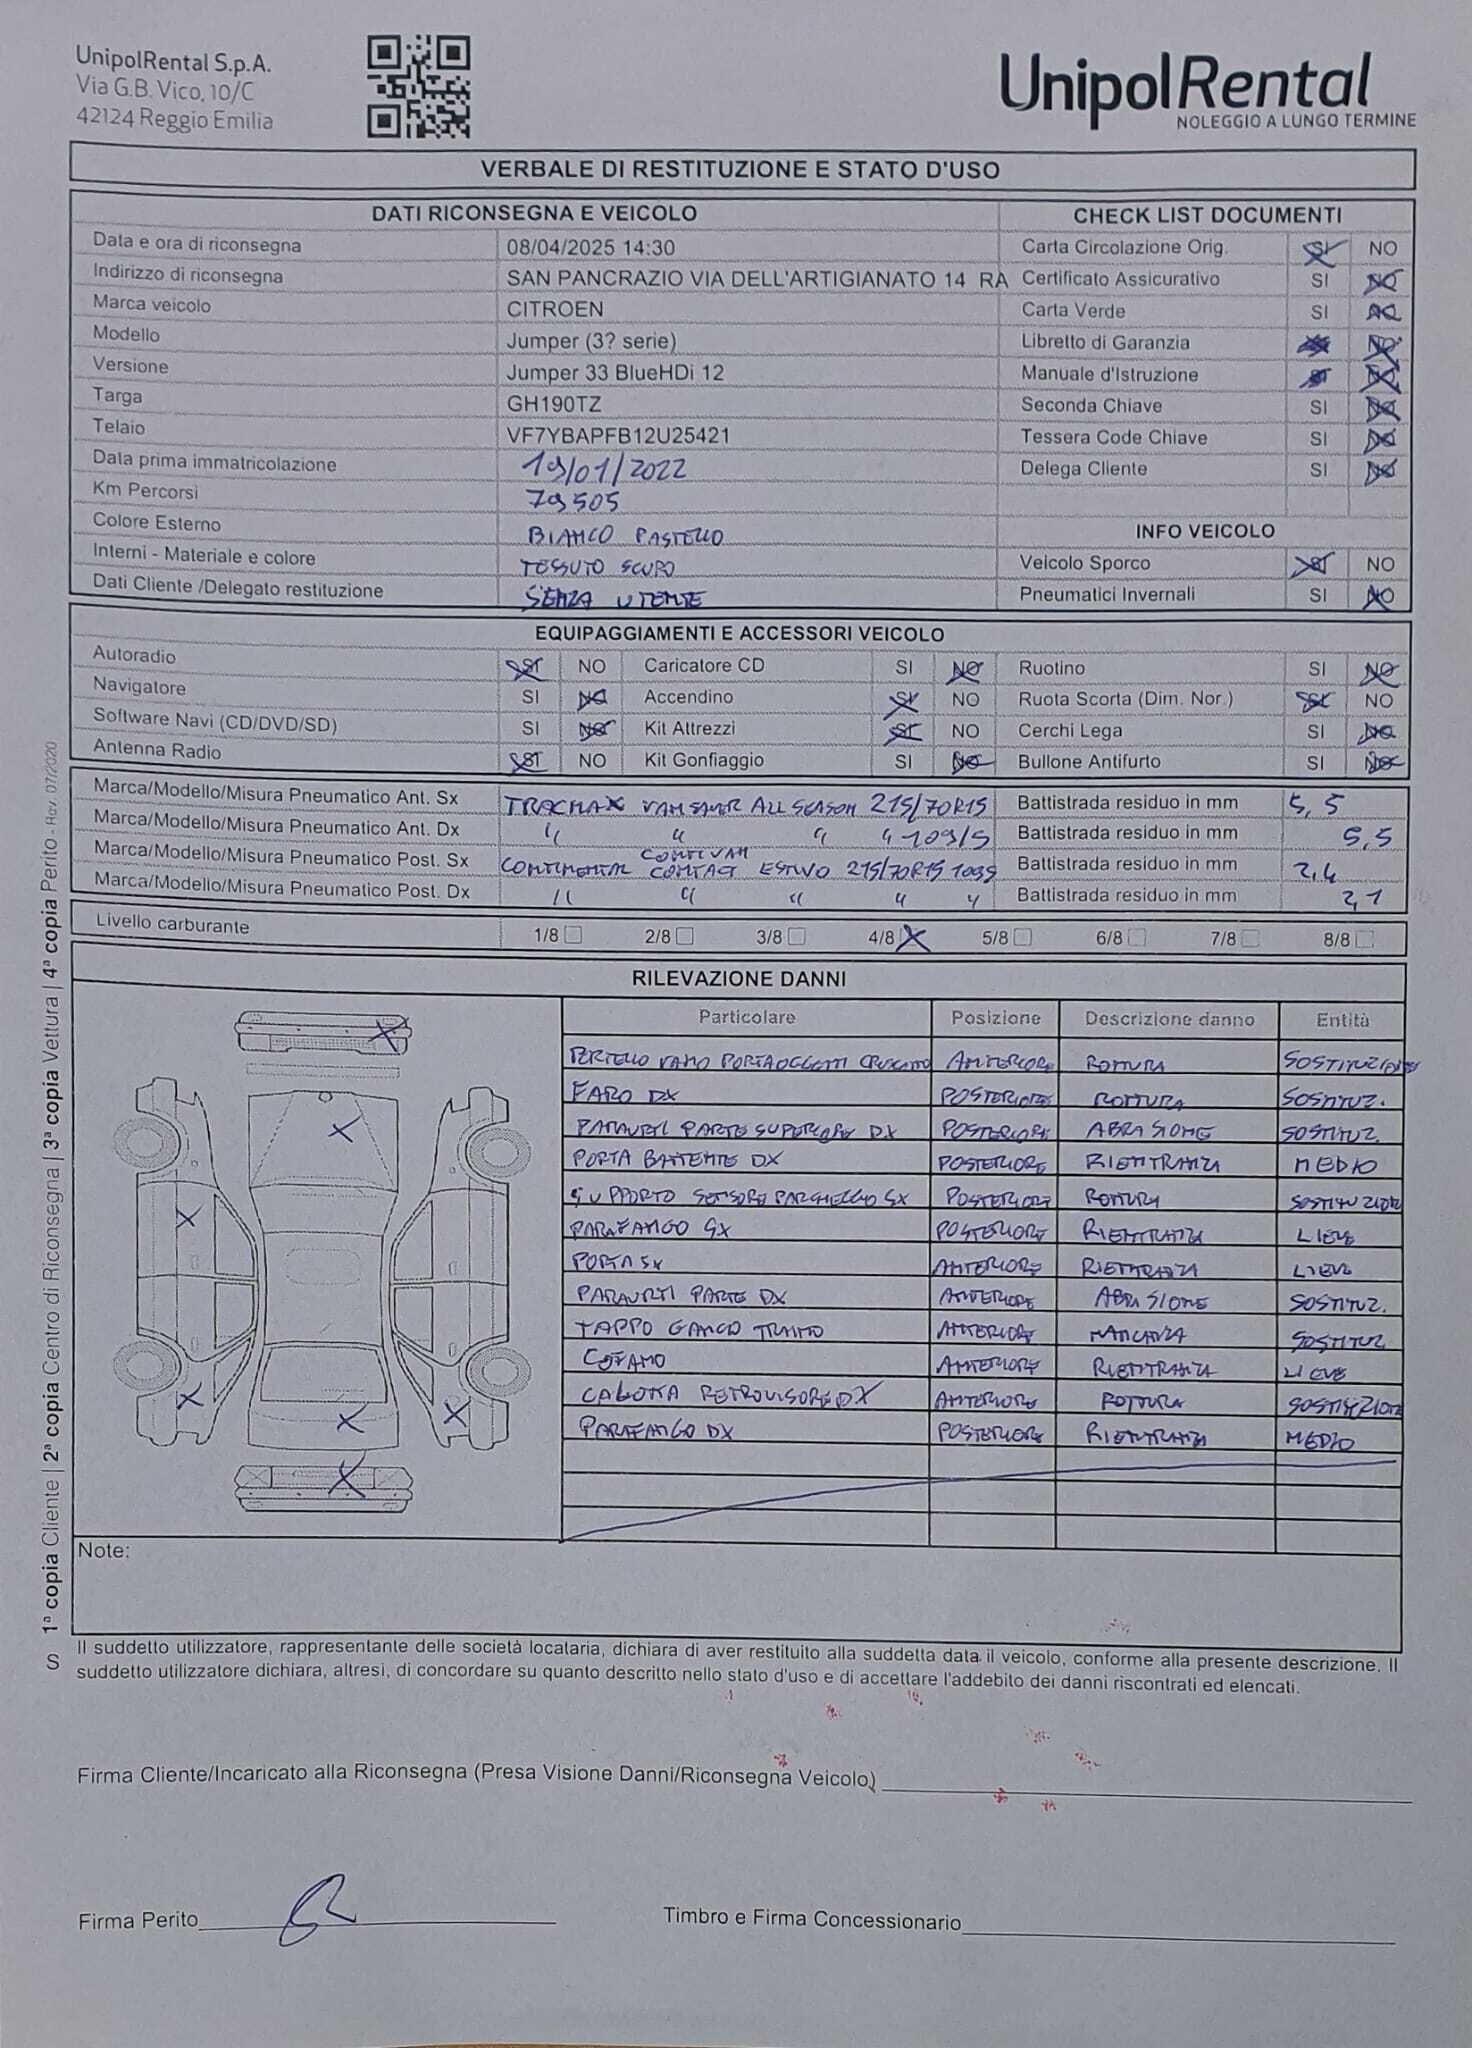 UnipolRental S.p.A.
Via G.B. Vico, 10/C
42124 Reggio Emilia
UnipolRental
NOLEGGIO A LUNGO TERMINE
VERBALE DI RESTITUZIONE E STATO D'USO
DATI RICONSEGNA E VEICOLO
CHECK LIST DOCUMENTI
Data e ora di riconsegna 08/04/2025 14:30 Carta Circolazione Orig. SI NO
Indirizzo di riconsegna SAN PANCRAZIO VIA DELL'ARTIGIANATO 14 RA Certificato Assicurativo SI NO
Marca veicolo CITROEN Carta Verde SI NO
Modello Jumper (3? serie) Libretto di Garanzia NO
Versione Jumper 33 BlueHDi 12 Manuale d'Istruzione SI NO
Targa GH190TZ Seconda Chiave SI NO
Telaio VF7YBAPFB12U25421 Tessera Code Chiave SI NO
Data prima immatricolazione 19/01/2022 Delega Cliente SI NO
Km Percorsi 79505
Colore Esterno BIANCO PASTELLO INFO VEICOLO
Interni - Materiale e colore TESSUTO SCURO Veicolo Sporco SI NO
Dati Cliente /Delegato restituzione SENZA UTENTE Pneumatici Invernali SI NO
EQUIPAGGIAMENTI E ACCESSORI VEICOLO
Autoradio SI NO Caricatore CD SI NO Ruotino SI NO
Navigatore SI NO Accendino SI NO Ruota Scorta (Dim. Nor.) SI NO
Software Navi (CD/DVD/SD) SI NO Kit Attrezzi SI NO Cerchi Lega SI NO
Antenna Radio SI NO Kit Gonfiaggio SI NO Bullone Antifurto SI NO
Marca/Modello/Misura Pneumatico Ant. Sx TRACMAX VANSAVER ALL SEASON 215/70R15 Battistrada residuo in mm 5,5
Marca/Modello/Misura Pneumatico Ant. Dx " " " " 109/S Battistrada residuo in mm 5,5
Marca/Modello/Misura Pneumatico Post. Sx CONTINENTAL CONTIVAN CONTACT ESTIVO 215/70R15 109S Battistrada residuo in mm 2,4
Marca/Modello/Misura Pneumatico Post. Dx " " " " " Battistrada residuo in mm 2,1
Livello carburante 1/8 2/8 3/8 4/8 5/8 6/8 7/8 8/8
RILEVAZIONE DANNI
Particolare Posizione Descrizione danno Entità
VANO PORTAOGGETTI CRUSCOTTO ANTERIORE ROTTURA SOSTITUZIONE
FARO DX POSTERIORE ROTTURA SOSTITUZ.
PARAURTI PARTE SUPERIORE DX POSTERIORE ABRASIONE SOSTITUZ.
PORTA BATTENTE DX POSTERIORE RIENTRANZA MEDIO
SUPPORTO SENSORE PARCHEGGIO SX POSTERIORE ROTTURA SOSTITUZIONE
PARAFANGO SX POSTERIORE RIENTRANZA LIEVE
PORTA SX ANTERIORE RIENTRANZA LIEVE
PARAURTI PARTE DX ANTERIORE ABRASIONE SOSTITUZ.
TAPPO GANCIO TRAINO ANTERIORE MANCANZA SOSTITUZ.
COFANO ANTERIORE RIENTRANZA LIEVE
CALOTTA RETROVISORE DX ANTERIORE ROTTURA SOSTITUZIONE
PARAFANGO DX POSTERIORE RIENTRANZA MEDIO
Note:
Il suddetto utilizzatore, rappresentante delle società locataria, dichiara di aver restituito alla suddetta data il veicolo, conforme alla presente descrizione. Il
suddetto utilizzatore dichiara, altresì, di concordare su quanto descritto nello stato d'uso e di accettare l'addebito dei danni riscontrati ed elencati.
Firma Cliente/Incaricato alla Riconsegna (Presa Visione Danni/Riconsegna Veicolo)
Firma Perito
Timbro e Firma Concessionario
S 1ª copia Cliente | 2ª copia Centro di Riconsegna | 3ª copia Vettura | 4ª copia Perito - Rev. 07/2020